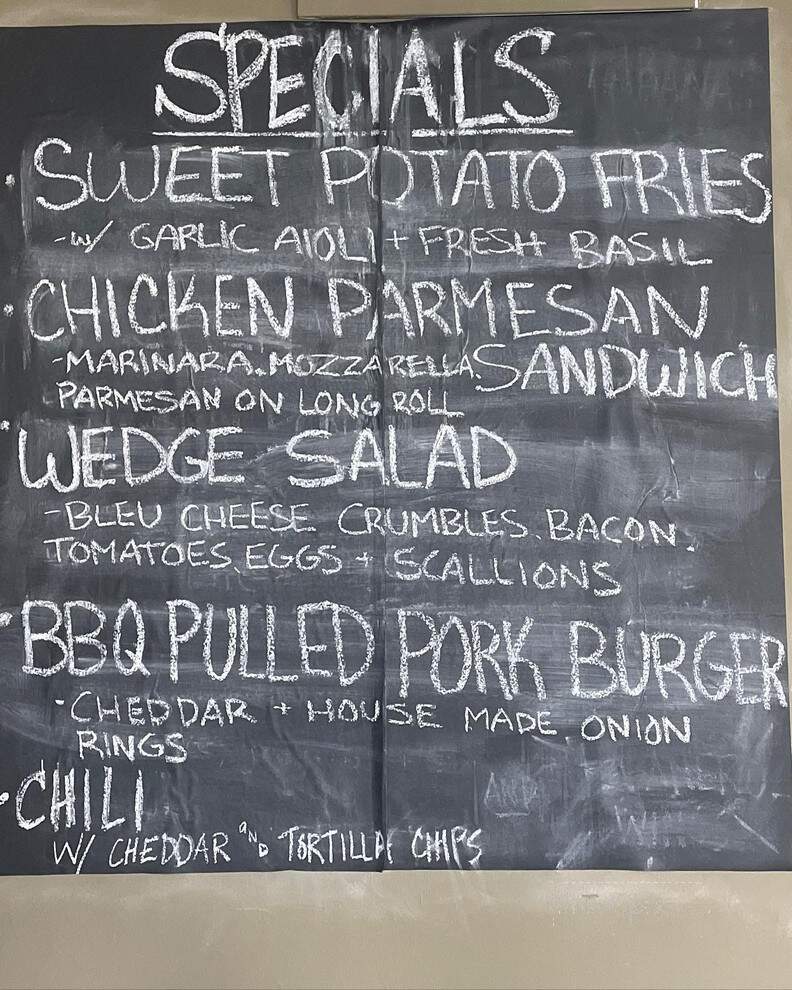 SPECIALS
• SWEET POTATO FRIES
-W/ GARLIC AIOLI + FRESH BASIL
• CHICKEN PARMESAN
SANDWICH
-MARINARA, MOZZARELLA,
PARMESAN ON LONG ROLL
• WEDGE SALAD
-BLEU CHEESE CRUMBLES, BACON,
TOMATOES, EGGS + SCALLIONS
• BBQ PULLED PORK BURGER
-CHEDDAR + HOUSE MADE ONION
RINGS
• CHILI
W/ CHEDDAR AND TORTILLA CHIPS
AND